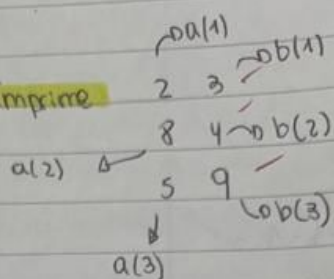 a(1)
b(1)
imprime 2 3
8 4 b(2)
a(2)
5 9
b(3)
a(3)